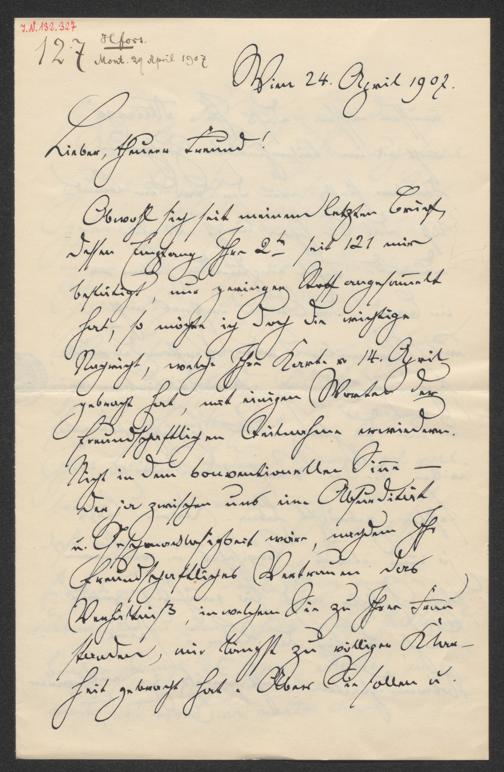 I.N. 132.327
127 Hfors.
Mont. 29 April 1907
Wien 24. April 1907.
Lieber, theurer Freund!
Obwohl sich seit meinem letzten Brief,
dessen Empfang Ihre 2te seit 121 mir
bestätigt, nur geringer Stoff angesammelt
hat, so möchte ich doch die wichtige
Nachricht, welche Ihre Karte v. 14. April
gebracht hat, mit einigen Worten der
freundschaftlichen Teilnahme erwiedern.
Nicht in dem conventionellen Sinne —
der ja zwischen uns eine Absurdität
u. Geschmacklosigkeit wäre, nachdem Ihr
freundschaftliches Vertrauen das
Verhältniß, in welchem Sie zu Ihrer Frau
standen, mir längst zu völliger Klar-
heit gebracht hat. Aber Sie sollen u.